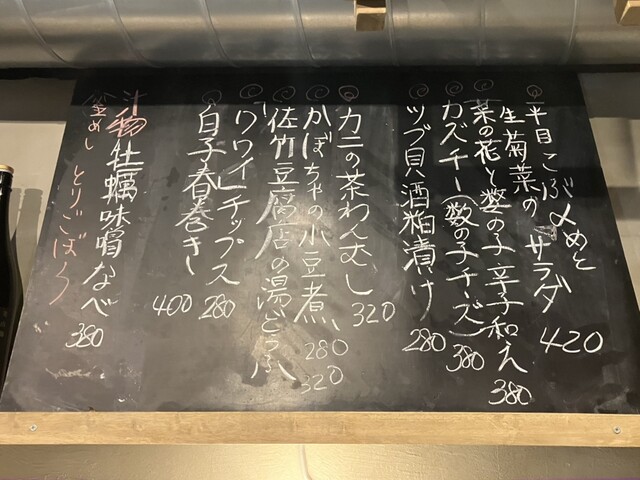 平目こぶ〆めと
生菊菜のサラダ 420
菜の花と数の子辛子和え 380
カズチー(数の子チーズ) 380
ツブ貝酒粕漬け 280
カニの茶わんむし 320
かぼちゃの小豆煮 280
佐竹豆腐店の湯どうふ 320
ワワイレチップス 280
白子春巻き 400
汁物 牡蠣味噌なべ 380
釜めし とりごぼう